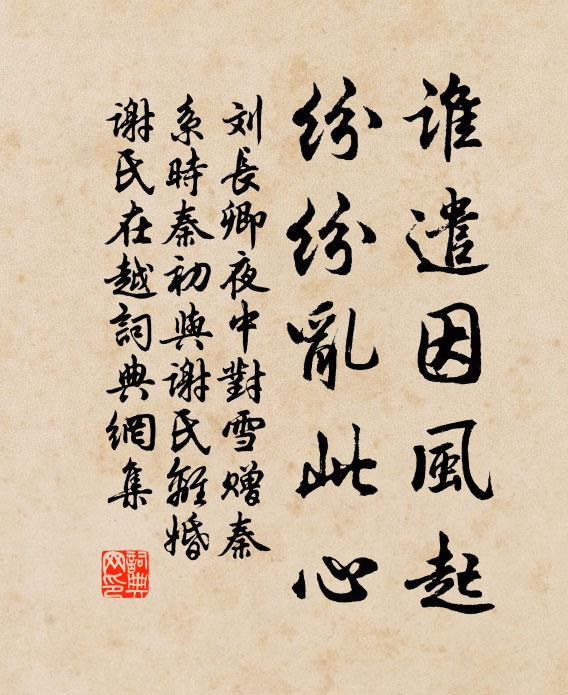 誰遣因風起
紛紛亂此心
刘長卿夜中對雪赠秦
系時秦初與谢民離婚
谢民在越詞典網集
詞典
网印